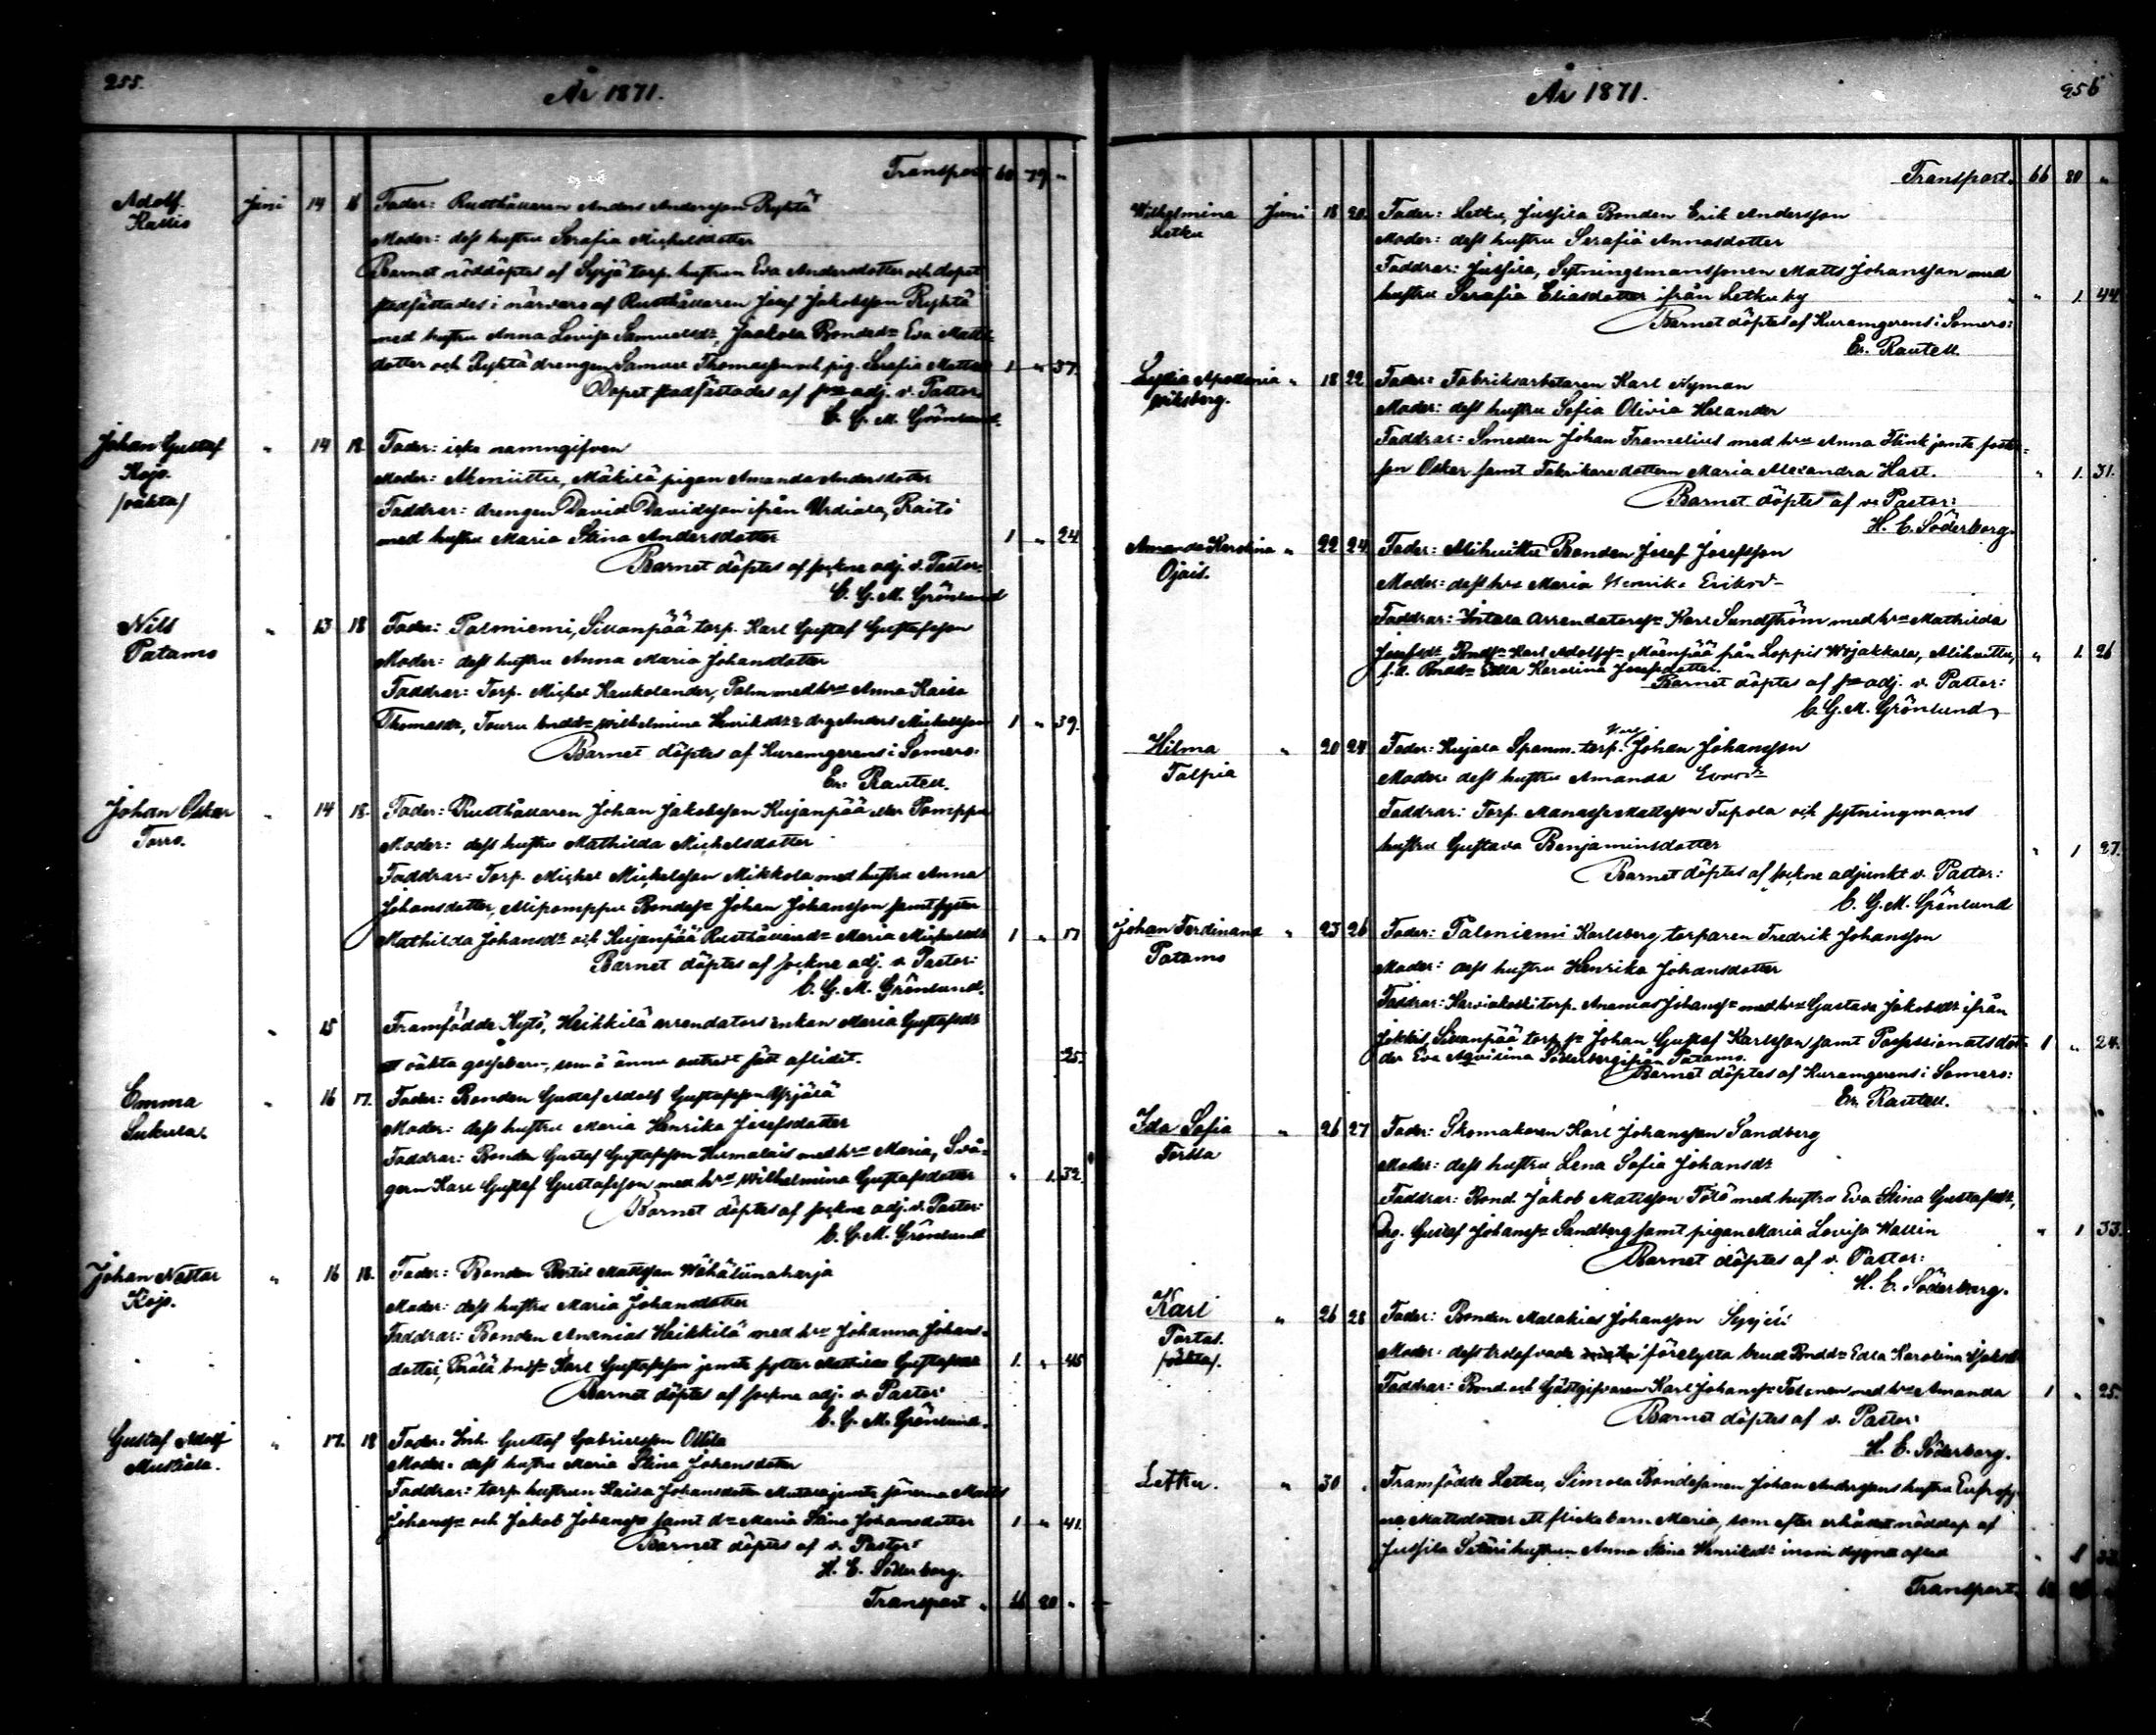 255.
År 1871.
Transport 60 79 "
Adolf. Juni 14 16 Fader: Rusthållaren Anders Andersson Ryhtä
Kallio
Moder: dess hustru Serafia Michelsdotter
Barnet nöddöptes af Syrjä torp. hustrun Eva Andersdotter och dopet
stadfästades i närvaro af Rusthållaren Josef Jakobsson Ryhtä
med hustru Anna Lovisa Samuelsdr, Jaakola Bonded:r Eva Matts-
dotter och Ryhtä drengen Samuel Thomasson och pig. Serafia Mattsd 1 " 37.
Dopet stadfästades af adj. v. Pastor
C. G. M. Grönlund.
Johan Gustaf " 14 18 Fader: icke namngifven
Kojo.
/oäkta/
Moder: Mäkilä pigan Amanda Andersdotter
Faddrar: drengen David Davidsson ifrån Urdiala, Raitö
med hustru Maria Stina Andersdotter 1 " 24
Barnet döptes af sockne adj. v. Pastor:
C. G. M. Grönlund
Nils " 13 18 Fader: Paloniemi, Sillanpää torp. Karl Gustaf Gustafsson
Patamo
Moder: dess hustru Anna Maria Johansdotter
Faddrar: Torp. Michel Kaukolander, Palm med h:u Anna Kaisa
Thomasdr, Touru bondd:r Wilhelmina Henriksdr & drg Anders Michelsson 1 " 39.
Barnet döptes af Kuramgerens i Somero:
Er. Rautell.
Johan Oskar " 14 18. Fader: Rusthållaren Johan Jakobsson Kujanpää eller Pomppu
Torro.
Moder: dess hustru Mathilda Michelsdotter
Faddrar: Torp. Michel Michelsson Mikkola med hustru Anna
Johansdotter, Alipomppu Bondes:n Johan Johansson samt syster
Mathilda Johansdr och Kujanpää Rusthålland:r Maria Michelsdr 1 "
Barnet döptes af sockne adj. v. Pastor:
C. G. M. Grönlund.
" 15 Framfödde Kytö, Heikkilä arrendators enkan Maria Gustafsdr
ett oäkta gossebarn, som å ännu outredt sätt aflidit. 25.
Emma " 16 17. Fader: Bonden Gustaf Adolf Gustafsson Yrjälä
Sukula.
Moder: dess hustru Maria Henrika Josefsdotter
Faddrar: Bonden Gustaf Gustafsson Humalais med h:u Maria, Svå-
gern Karl Gustaf Gustafsson med h:u Wilhelmina Gustafsdotter " 1. 32.
Barnet döptes af sockne adj. v. Pastor:
C. G. M. Grönlund
Johan Nestor " 16 18. Fader: Bonden Bertil Mattsson Wähäliinaharja
Kojo.
Moder: dess hustru Maria Johansdotter
Faddrar: Bonden Ananias Heikkilä med h:u Johanna Johans-
dotter, bnds:n Karl Gustafsson jemte syster Mathilda Gustafsdr 1. " 45
Barnet döptes af sockne adj. v. Pastor:
C. G. M. Grönlund.
Gustaf Adolf " 17. 18 Fader: Inh. Gustaf Gabrielsson Ollila
Mustiala.
Moder: dess hustru Maria Stina Johansdoter
Faddrar: torp. hustrun Kaisa Johansdotter jemte sönerna Matts
Johanss:n och Jakob Johanss:n samt d:r Maria Stina Johansdotter 1 " 41.
Barnet döptes af v. Pastor:
H. E. Söderborg.
Transport " 66 80 "
256
År 1871.
Transport. 66 80 "
Wilhelmina Juni 18 20. Fader: Letku, Jussila Bonden Erik Andersson
Letku
Moder: dess hustru Serafia Annasdotter
Faddrar: Jussila, Sytningsmanssonen Matts Johansson med
hustru Serafia Eliasdotter ifrån Letku by " 1. 44
Barnet döptes af Kuramgerens i Somero:
Er. Rautell
Lydia Apollonia " 18 22 Fader: Fabriksarbetaren Karl Nyman
Wiksberg.
Moder: dess hustru Sofia Olivia Helander
Faddrar: Smeden Johan Framelius med h:u Anna Flink jemte foster-
son Oskar samt Fabrikare dottern Maria Alexandra Hast. " 1. 31.
Barnet döptes af v. Pastor:
H. E. Söderborg.
Amanda Karolina " 22 24. Fader: Alihuittu Bonden Josef Josefsson
Ojais.
Moder: dess h:u Maria Henrika Eriksd:r
Faddrar: Intala Arrendators:n Karl Sundström med h:u Mathilda
Josefsdr, Bonds:n Karl Adolfs:n Mäenpää från Loppis Wojakkala, Alihuittu, " 1. 26
Bondd:r Edla Karolina Josefsdotter.
Barnet döptes af adj. v. Pastor:
C. G. M. Grönlund
Hilma " 20 24 Fader: Kujala Spanm. torp. Karl Johan Johansson
Talpia
Moder: dess hustru Amanda Evasd:r
Faddrar: Torp. Manasse Mattsson Tupola och sytningmans
hustru Gustava Benjaminsdotter " 1 27.
Barnet döptes af sockne adjunkt v. Pastor:
C. G. M. Grönlund
Johan Ferdinand " 23 26 Fader: Paloniemi Karlsberg torparen Fredrik Johansson
Patamo
Moder: dess hustru Henrika Johansdotter
Faddrar: Karviakoski torp. Ananias Johanss:n med h:u Gustava Jakobsdr ifrån
Jokkis, Sillanpää torp. s:n Johan Gustaf Karlsson samt Possessionatsdot- 1 " 24.
der Eva Söderberg ifrån Patamo.
Barnet döptes af Kuramgerens i Somero:
Er. Rautell.
Ida Sofia " 26 27 Fader: Skomakaren Karl Johansson Sandberg
Moder: dess hustru Lena Sofia Johansdr
Faddrar: Bond. Jakob Mattsson Tölö med hustru Eva Stina Gustafsdr,
Drg. Gustaf Johanss:n Sandberg samt pigan Maria Lovisa Wallin " 1 33.
Barnet döptes af v. Pastor:
H. E. Söderborg.
Karl " 26 28 Fader: Bonden Malakias Johansson Syrjä
Portas.
/oäkta/.
Moder: dess trolofvade förelysta brud Bondd:r Edla Karolina
Faddrar: Bond. och Gästgifvaren Karl Johanss:n Tolonen med h:u Amanda 1 " 25.
Barnet döptes af v. Pastor:
H. E. Söderborg.
Letku. " 30 Framfödde Letku, Simola Bondesonen Johan Anderssons hustru
Mattsdotter ett flickebarn Maria, som efter erhållet nöddop af
Jussila hustrun Anna Stina Henriksdr inom dygnet afled
Transport.